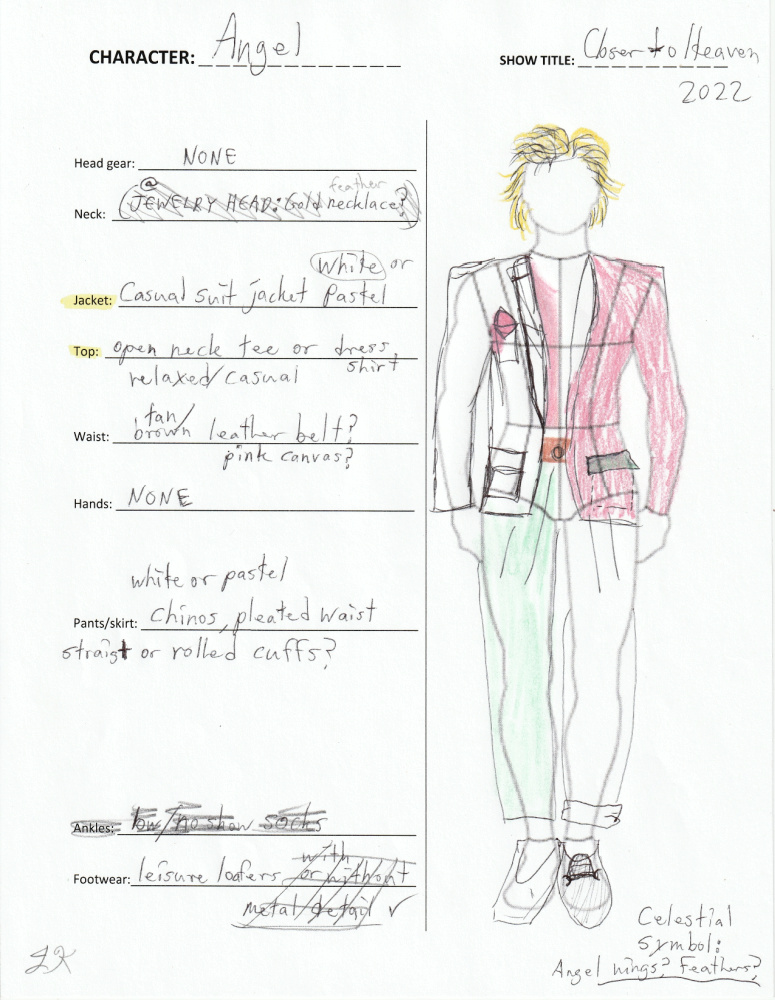 CHARACTER: Angel
SHOW TITLE: Closer to Heaven
2022
Head gear: NONE
feather
Neck: (JEWELRY HEAD: Gold necklace?)
white or
Jacket: Casual suit jacket Pastel
Top: open neck tee or dress shirt
relaxed/casual
tan/
Waist: brown leather belt?
pink canvas?
Hands: NONE
white or pastel
Pants/skirt: Chinos, pleated waist
straigt or rolled cuffs?
Ankles: low/no show socks
with
Footwear: leisure loafers or without
metal detail
Celestial
Symbol:
Angel wings? Feathers?
JK